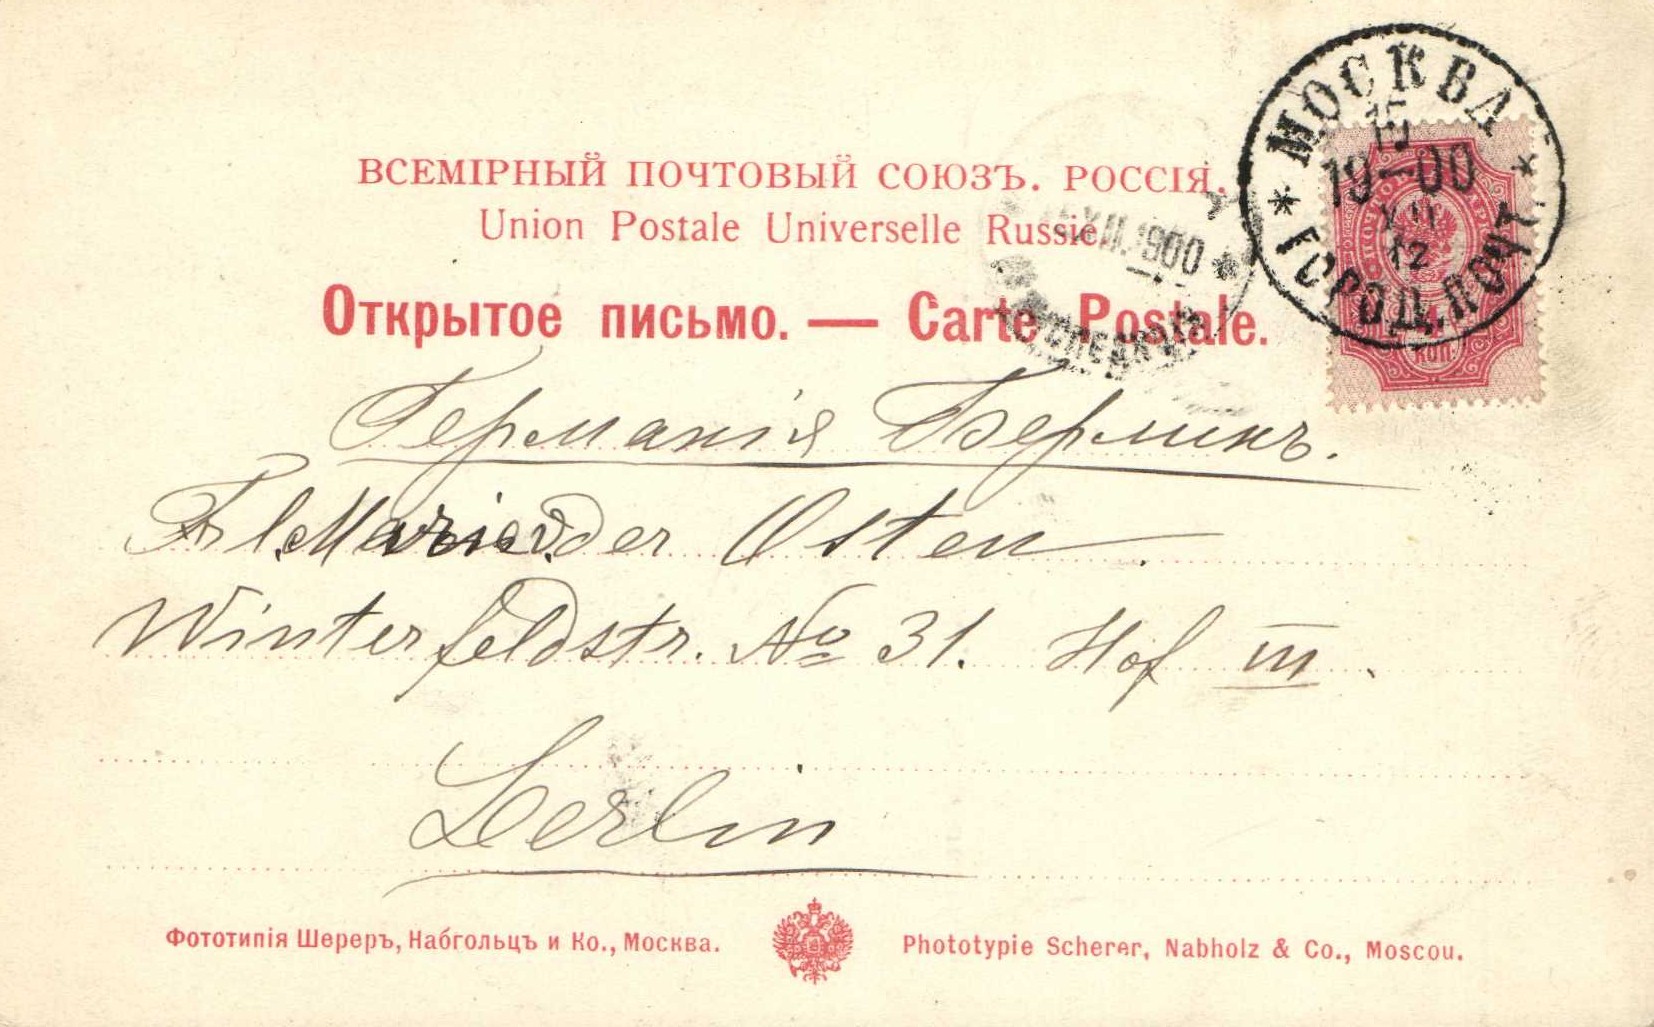 ВСЕМІРНЫЙ ПОЧТОВЫЙ СОЮЗЪ. РОССІЯ.
Union Postale Universelle Russie.
Открытое письмо. — Carte Postale.
МОСКВА
19-00
XII
12
ГОРОД. ПОЧТ.
XII.1900
КОП.
Германія Берлинъ.
Frl. Marie v. der Osten
Winterfeldstr. No 31. Hof III.
Berlin
Фототипія Шереръ, Набгольцъ и Ко., Москва.
Phototypie Scherer, Nabholz & Co., Moscou.